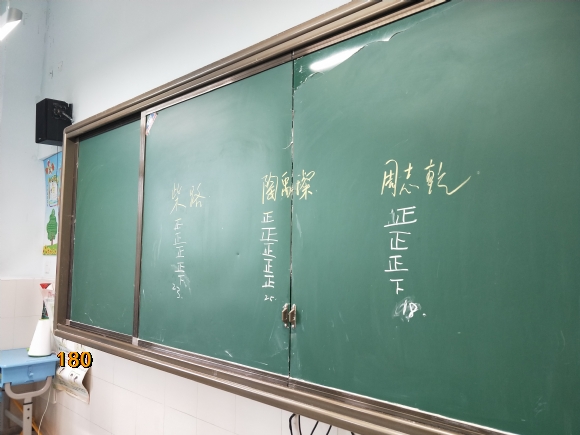 柴
陶禹潔
周志乾
正
正
正
正
下
23.
正
正
正
正
正
25.
正
正
正
下
18.
180